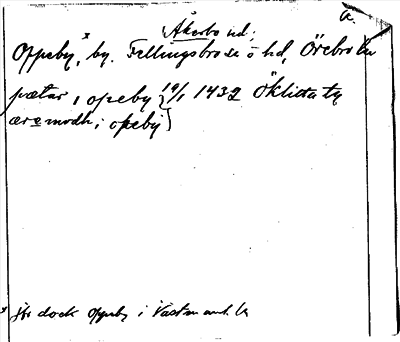 a.
Åkerbo hd;
Oppeby,ˣ by. Fellingsbro sn o hd, Örebro län
pætar i opeby } 19/1 1432 Öklista ty
æremodh i opeby }
x jfr dock Oppeby i Västmanl. l.